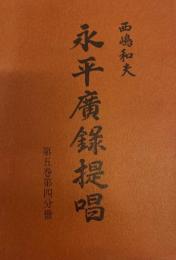 西嶋和夫
永平廣錄提唱
第五卷第四分冊